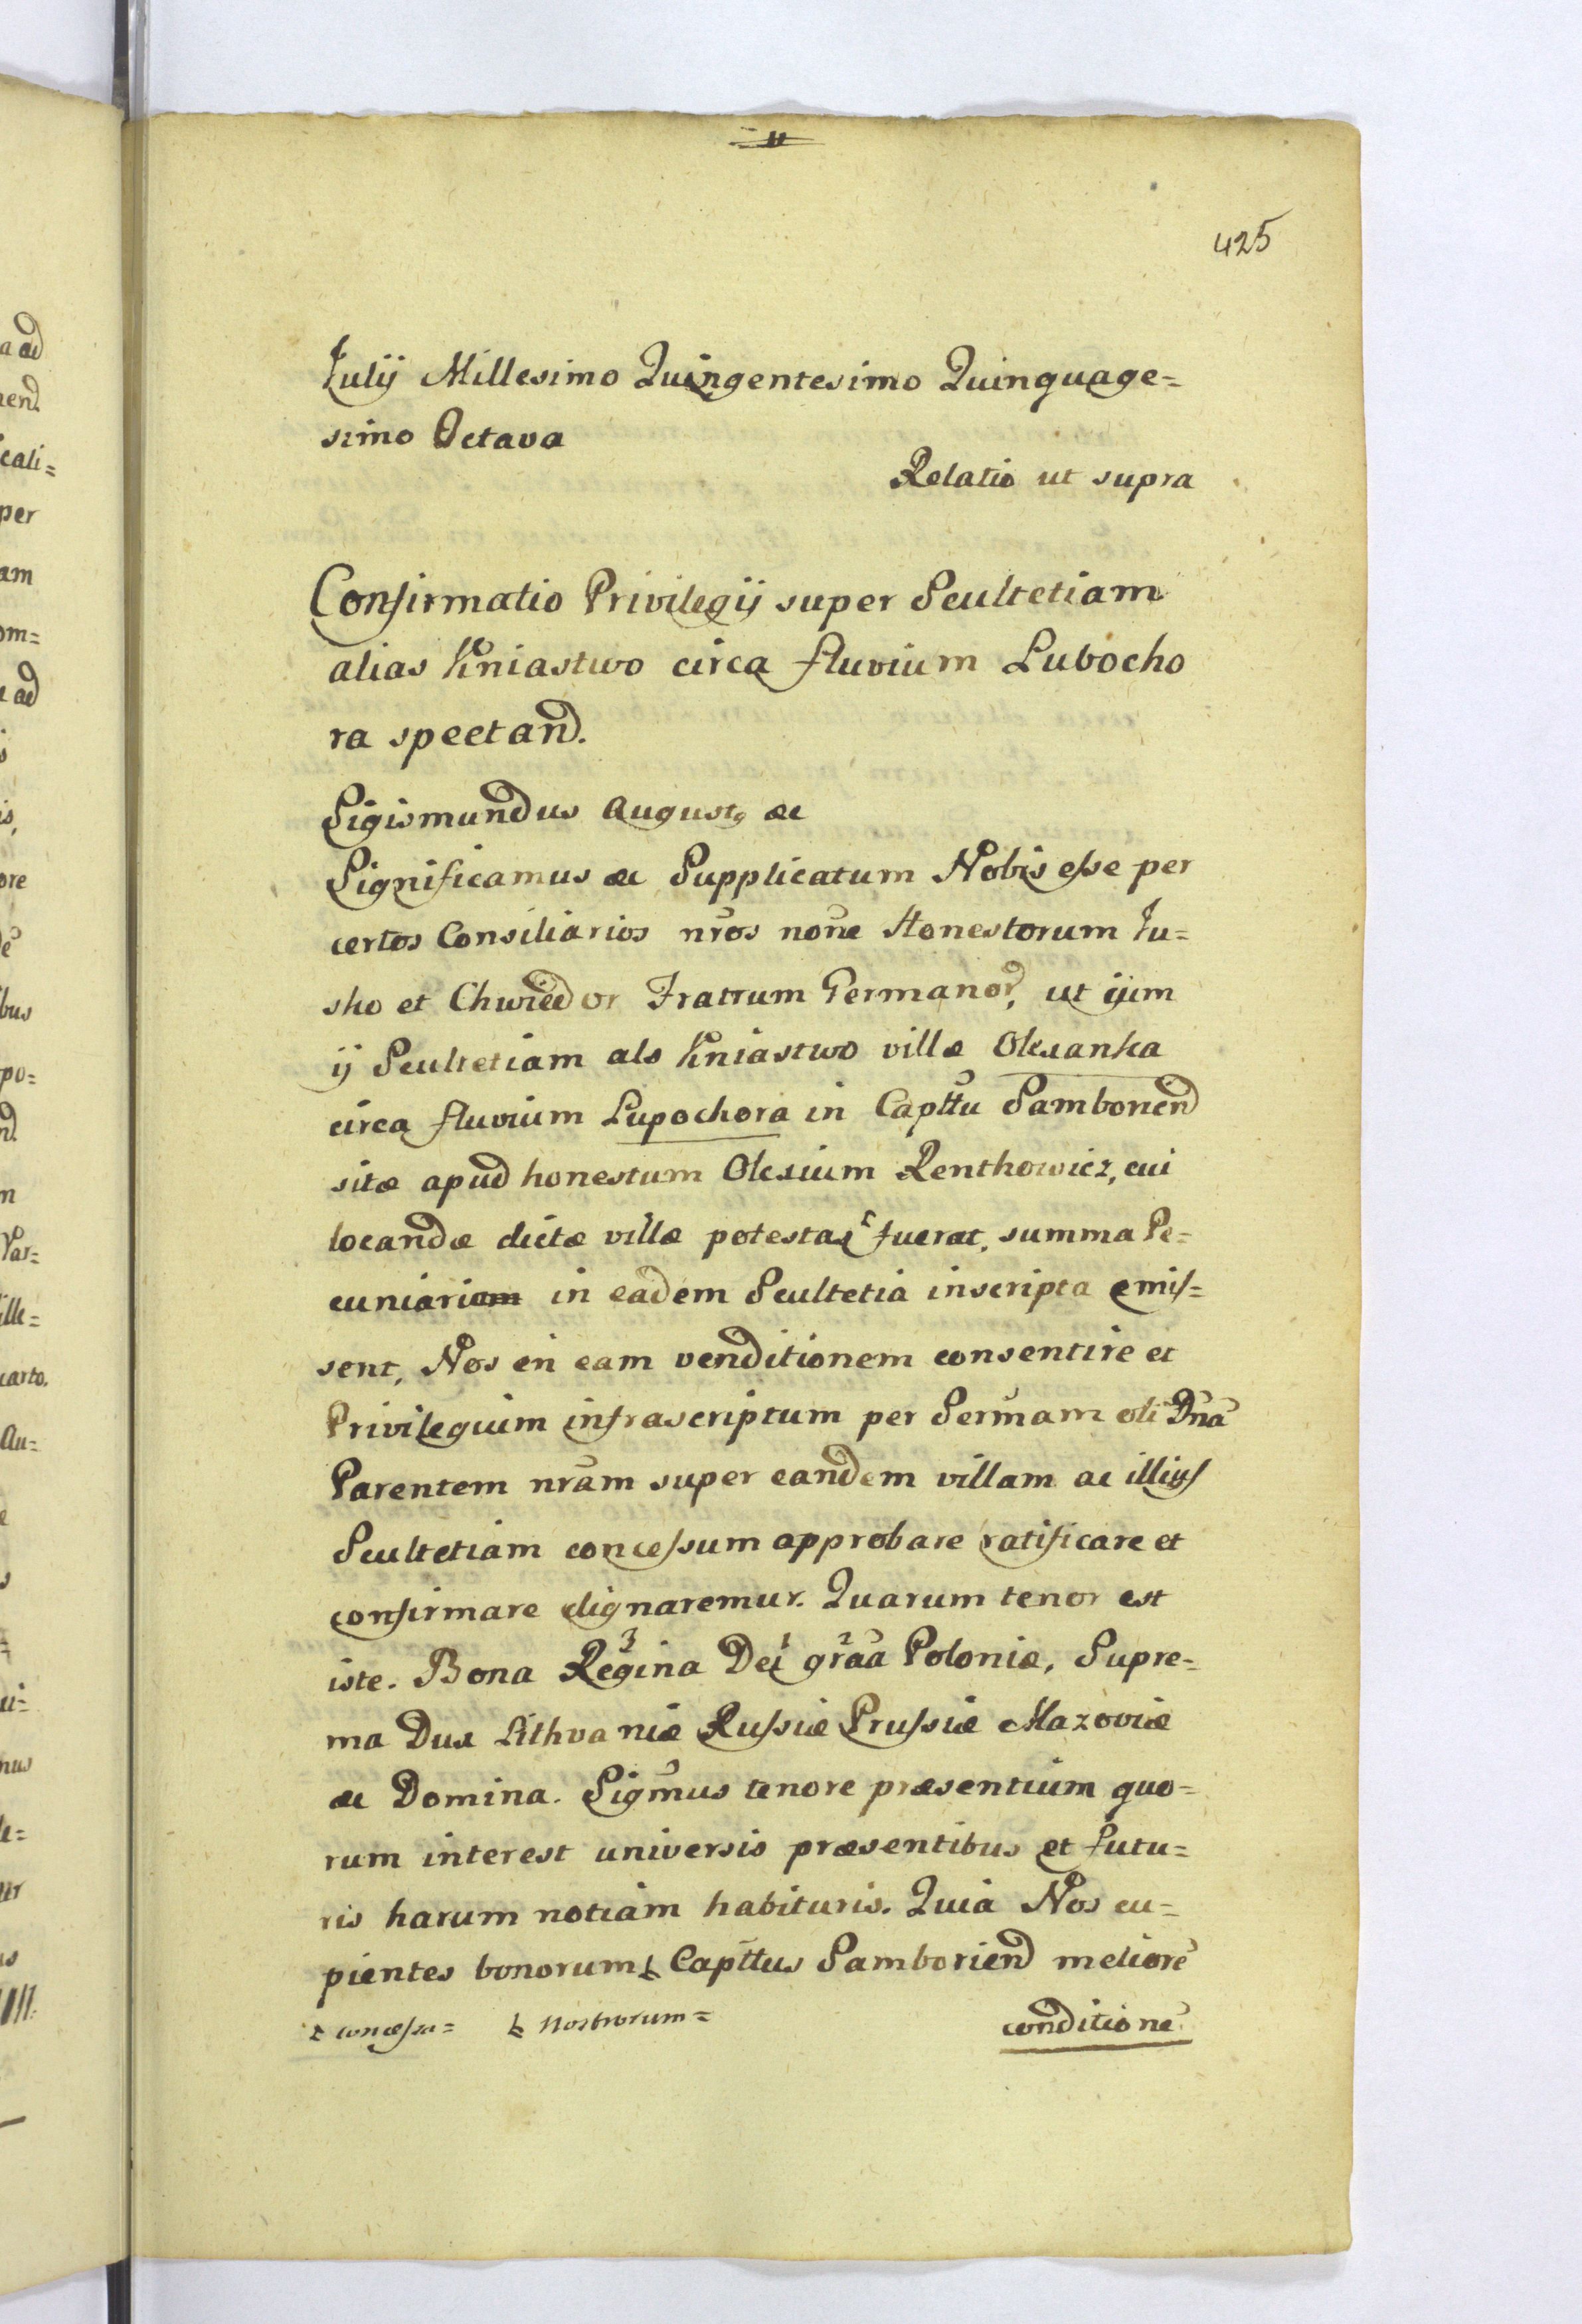 425
Julij Millesimo Quingentesimo Quinquage=
simo Octava
Relatio ut supra
Confirmatio Privilegij super Scultetiam
alias Kniastwo circa fluvium Lubocho
ra spectand.
Sigismundus August9 &c
Significamus &c Supplicatum Nobis esse per
certos Consiliarios nr̃os nõne Honestorum Ju=
sko et Chwiedor Fratrum Germanor, ut ijsm
ij Scultetiam als Kniastwo villæ Olexanka
circa fluvium Lupochora in Capttu Samborien̄d
sitæ apud honestum Olexium Renthowicz, cui
locandæ dictæ villæ potestas fuerat, summa Pe=
cuniariam in eadem Scultetia inscripta emis=
sent, Nos in eam venditionem consentire et
Privilegium infrascriptum per Serm̃am oli Dña
Parentem nr̃am super eandem villam ac illius
Scultetiam concessum approbare ratificare et
confirmare dignaremur. Quarum tenor est
iste. Bona Regina³ Dei¹ gr̃aa² Poloniæ, Supre=
ma Dux Lithvaniæ Russiæ Prussiæ Mazoviæ
&c Domina. Sigm̃us tenore præsentium quo=
rum interest universis præsentibus et futu=
ris harum notiam habituris. Quia Nos cu=
pientes bonorum Capttus Samboriend meliorē
concessa= nostrorum=
conditionē